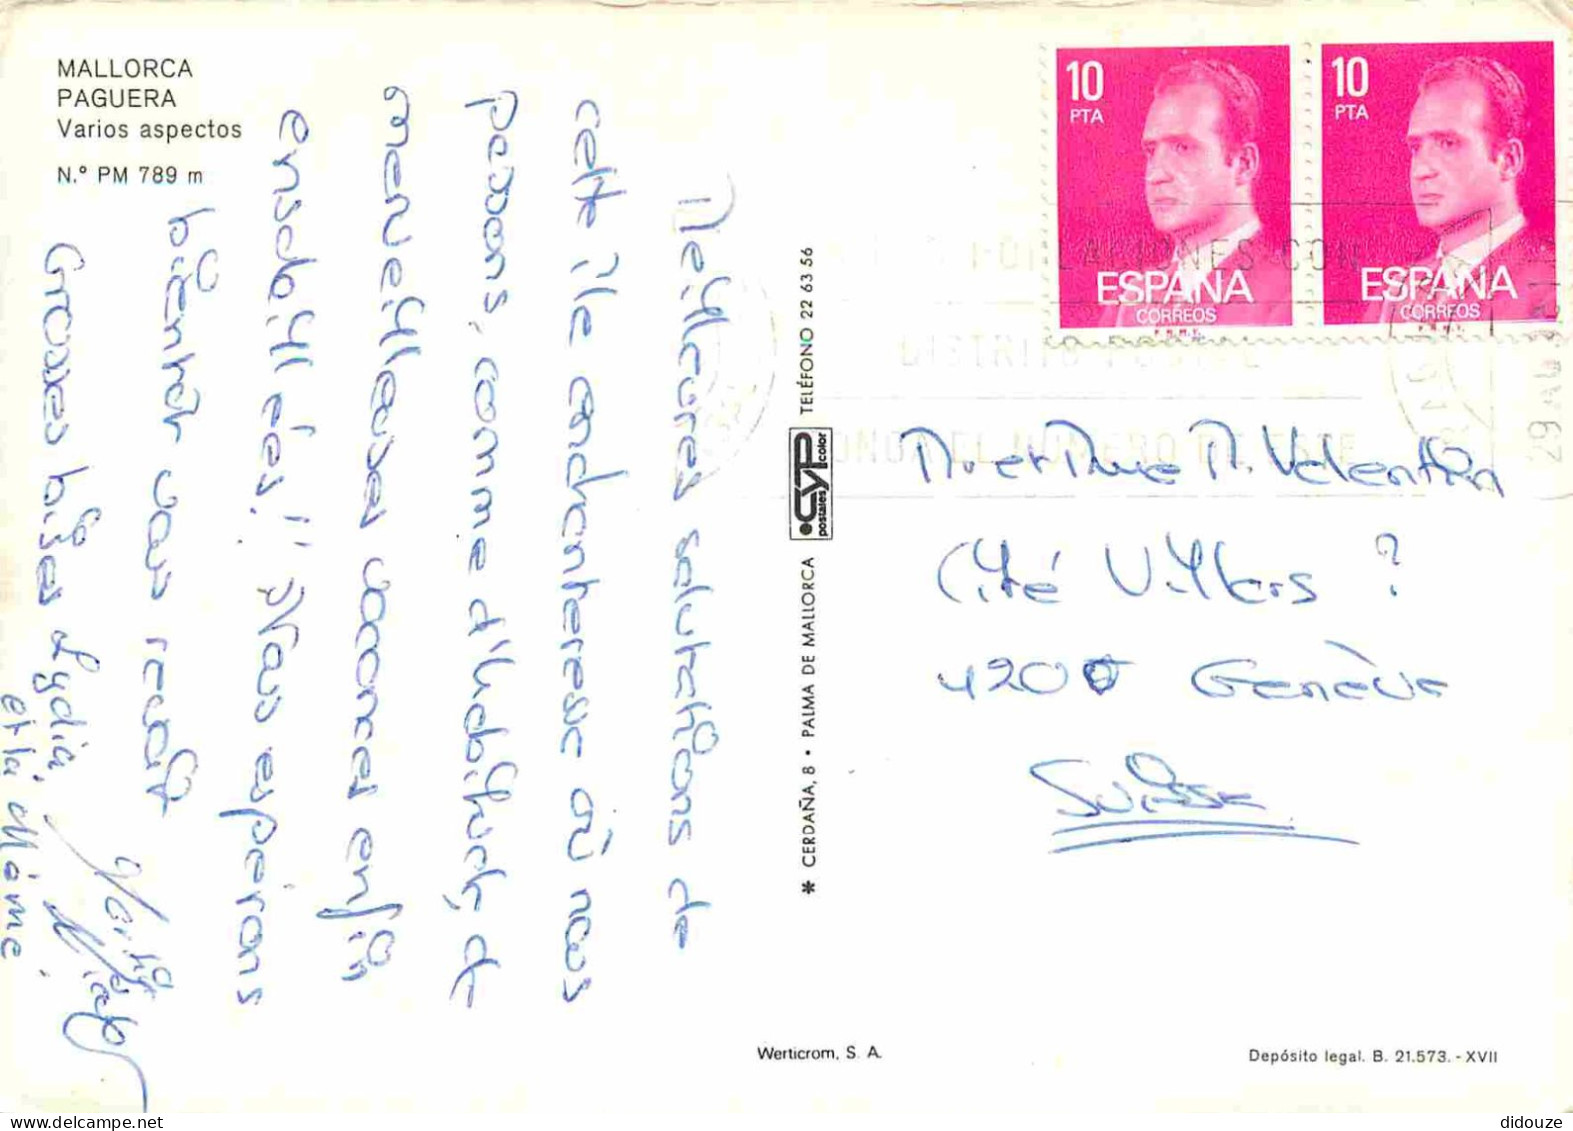 MALLORCA
PAGUERA
Varios aspectos
N.º PM 789 m
Meilleures salutations de
cette île enchanteresse où nous
passons, comme d'habitude, de
merveilleuses vacances enfin
ensoleillées! Nous espérons
bientôt vous revoir
Grosses bises Lydia
et la Mémé
✻ CERDAÑA, 8 • PALMA DE MALLORCA
CYP
postales color
TELÉFONO 22 63 56
10
PTA
ESPAÑA
CORREOS
F.N.M.T.
10
PTA
ESPAÑA
CORREOS
F.N.M.T.
POBLACIONES CON
DISTRITO POSTAL
PONGA EL NUMERO DE ESTE
29 AGO
M. et Mme M. Valentin
Cité Villars ?
1200 Genève
Suisse
Werticrom, S. A.
Depósito legal. B. 21.573. - XVII
didouze